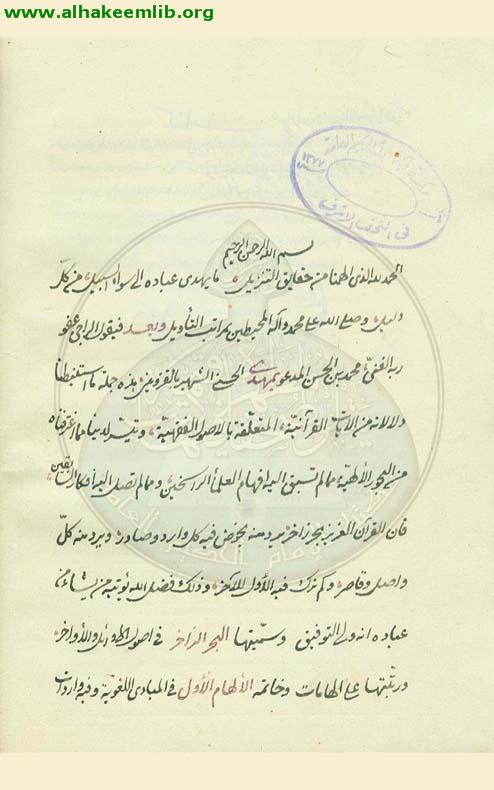 www.alhakeemlib.org
في النجف الاشرف
بسم الله الرحمن الرحيم
الحمد لله الذي الهمنا من حقايق التنزيل ما يهدي عباده الى سواء السبيل من كل
دليل وصلى الله على محمد وآله المحيطين بمراتب التأويل وبعد فيقول الراجي عفو
ربه الغني محمد بن الحسن المدعو بمهدي الحسني الشهير بالقزويني هذه جملة ما استنبطنا
دلالاته من الآيات القرآنية المتعلقة بالاصول الفقهية وتيسر لدينا مما اغترفناه
من البحور الالهية مما لم تسبق اليه افهام العلماء الراسخين ومما لم تصل اليه افكار
فان للقرآن العزيز بحر زاخر يخوض فيه كل وارد وصادر ويرد منه كل
واصل وقاصر وكم ترك فيه الأول للآخر وذلك فضل الله يؤتيه من يشاء من
عباده انه ولي التوفيق وسميتها البحر الزاخر في اصول الاوائل والأواخر
ورتبتها على الهامات وخاتمه الألهام الأول في المبادئ اللغوية وفيه واردات